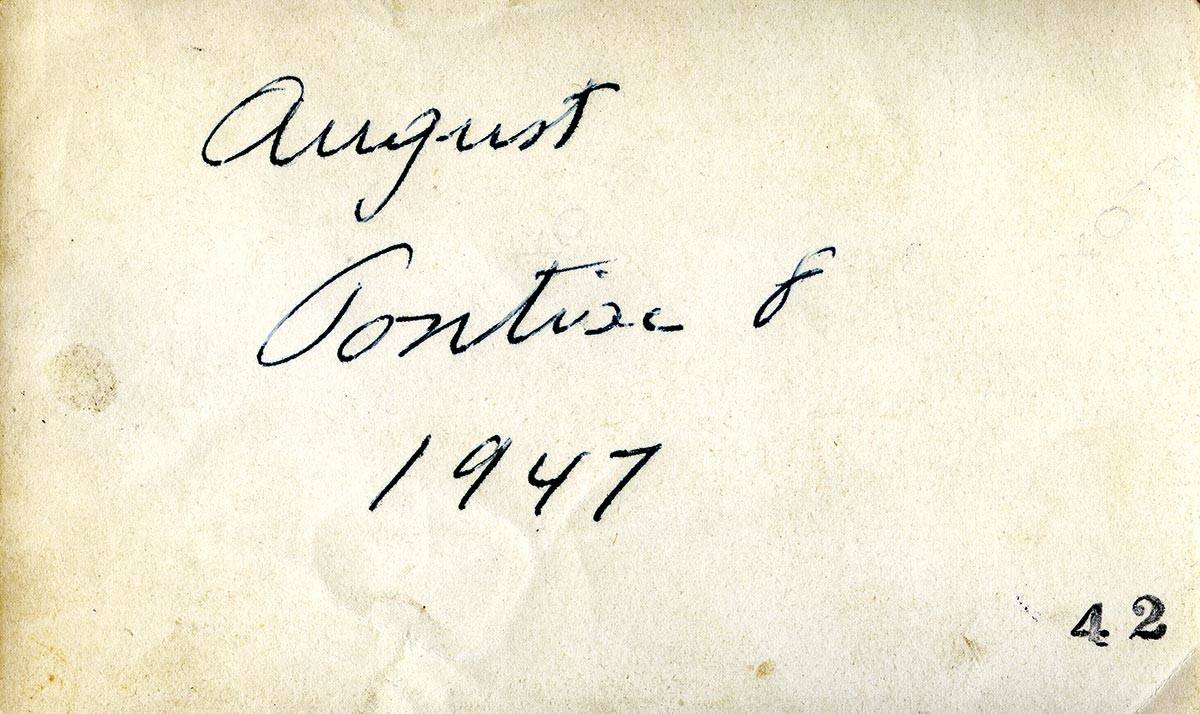 August
Pontiac 8
1947
42